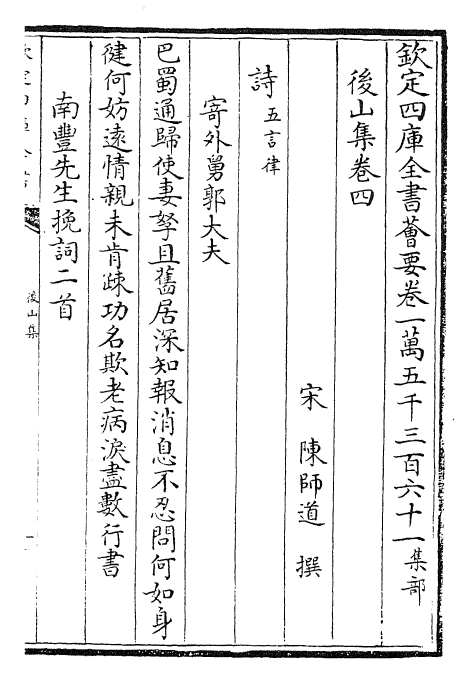 欽定四庫全書薈要卷一萬五千三百六十一集部
後山集卷四
宋 陳師道 撰
詩五言律
寄外舅郭大夫
巴蜀通歸使妻孥且舊居深知報消息不忍問何如身
健何妨遠情親未肯疎功名欺老病淚盡數行書
南豐先生挽詞二首
後山集